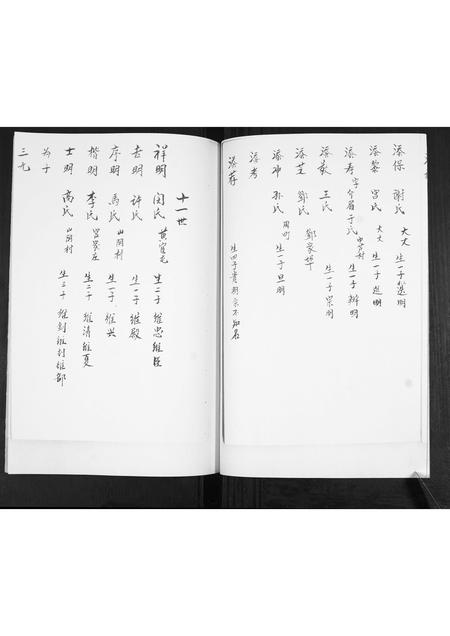 添保 謝氏 大丈 生一子選明
添黎 宮氏 大丈 生一子進明
添寿 字介眉 于氏 生一子辦明
添敖 王氏 生一子宗明
添芝 鄭氏 鄭家埠
添坤 孫氏 周町 生一子旦明
添考
添蒋 生四子貴明余不知名
十一世
祥明 閔氏 黄官屯 生二子 維忠維臣
吉明 許氏 生一子 維殿
序明 馬氏 山関村 生一子 維興
楷明 李氏 生二子 維清維夏
士明 高氏 山関村 生三子 維剖維封維部
为子
三九